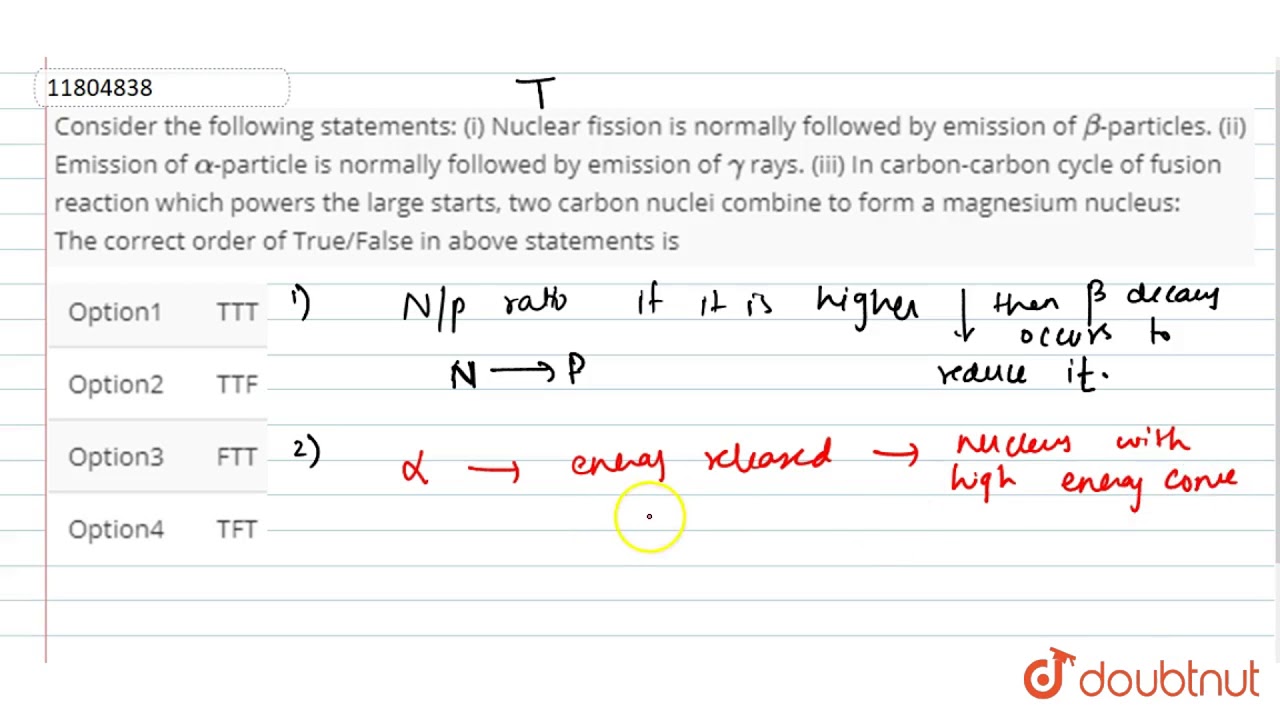 11804838
T
Consider the following statements: (i) Nuclear fission is normally followed by emission of β-particles. (ii)
Emission of α-particle is normally followed by emission of γ rays. (iii) In carbon-carbon cycle of fusion
reaction which powers the large starts, two carbon nuclei combine to form a magnesium nucleus:
The correct order of True/False in above statements is
Option1 TTT
Option2 TTF
Option3 FTT
Option4 TFT
1) N/p ratio if it is higher ↓ then β decays
occurs to
N → P reduce it.
2) α → energy released → nucleus with
high energy come
doubtnut